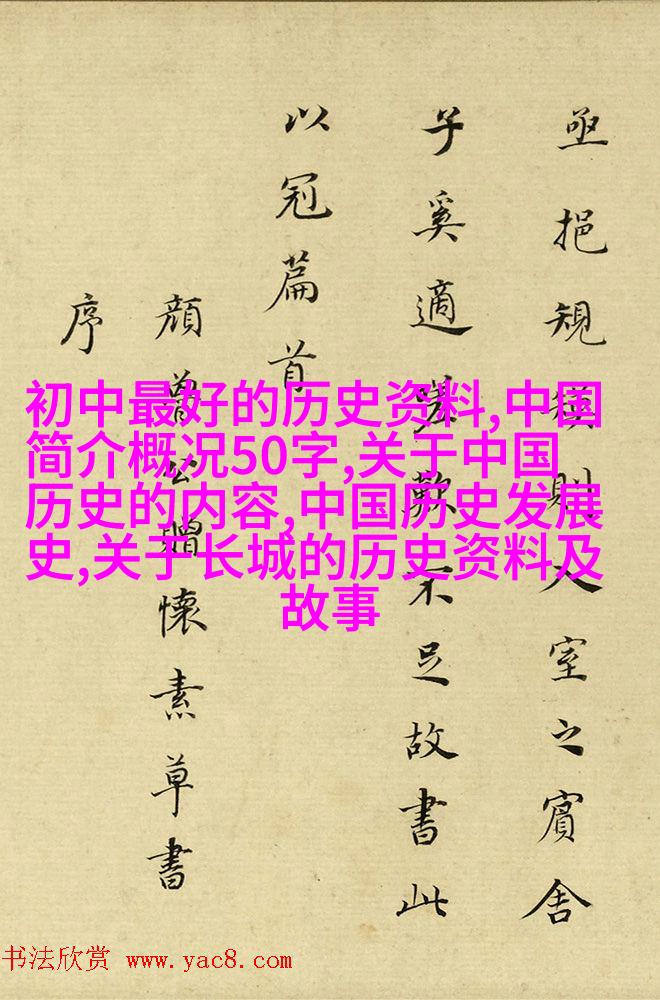 亟挹規模則入室之賓舍
子奚適嗟歎不足故書此
以冠篇首
顔魯公贈懷素草書
序
初中最好的历史资料,中国
简介概况50字,关于中国
历史的内容,中国历史发展
史,关于长城的历史资料及
故事
书法欣赏 www.yac8.com